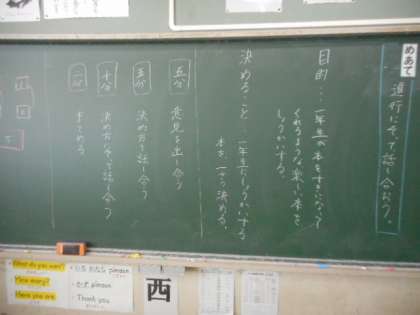 めあて
進行にそって話し合おう。
目的…一年生が本をすきになって
くれるような楽しい本を
しょうかいする。
決めること…一年生にしょうかいする
本を一つ決める。
五分 意見を出し合う
五分 決め方を話し合う
十分 決め方にそって話し合う
二分 まとめる
四
What do you want?
How many?
Here you are.
pleasen
pleasen
Thank you
西